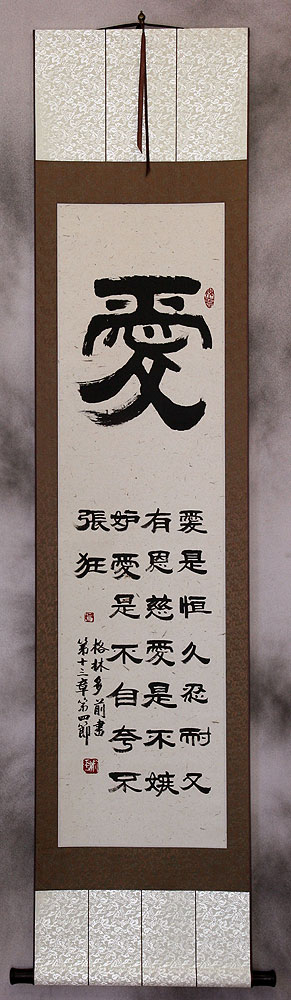 愛
愛是恒久忍耐又
有恩慈愛是不嫉
妒愛是不自夸不
張狂
格林多前書
第十三章第四節